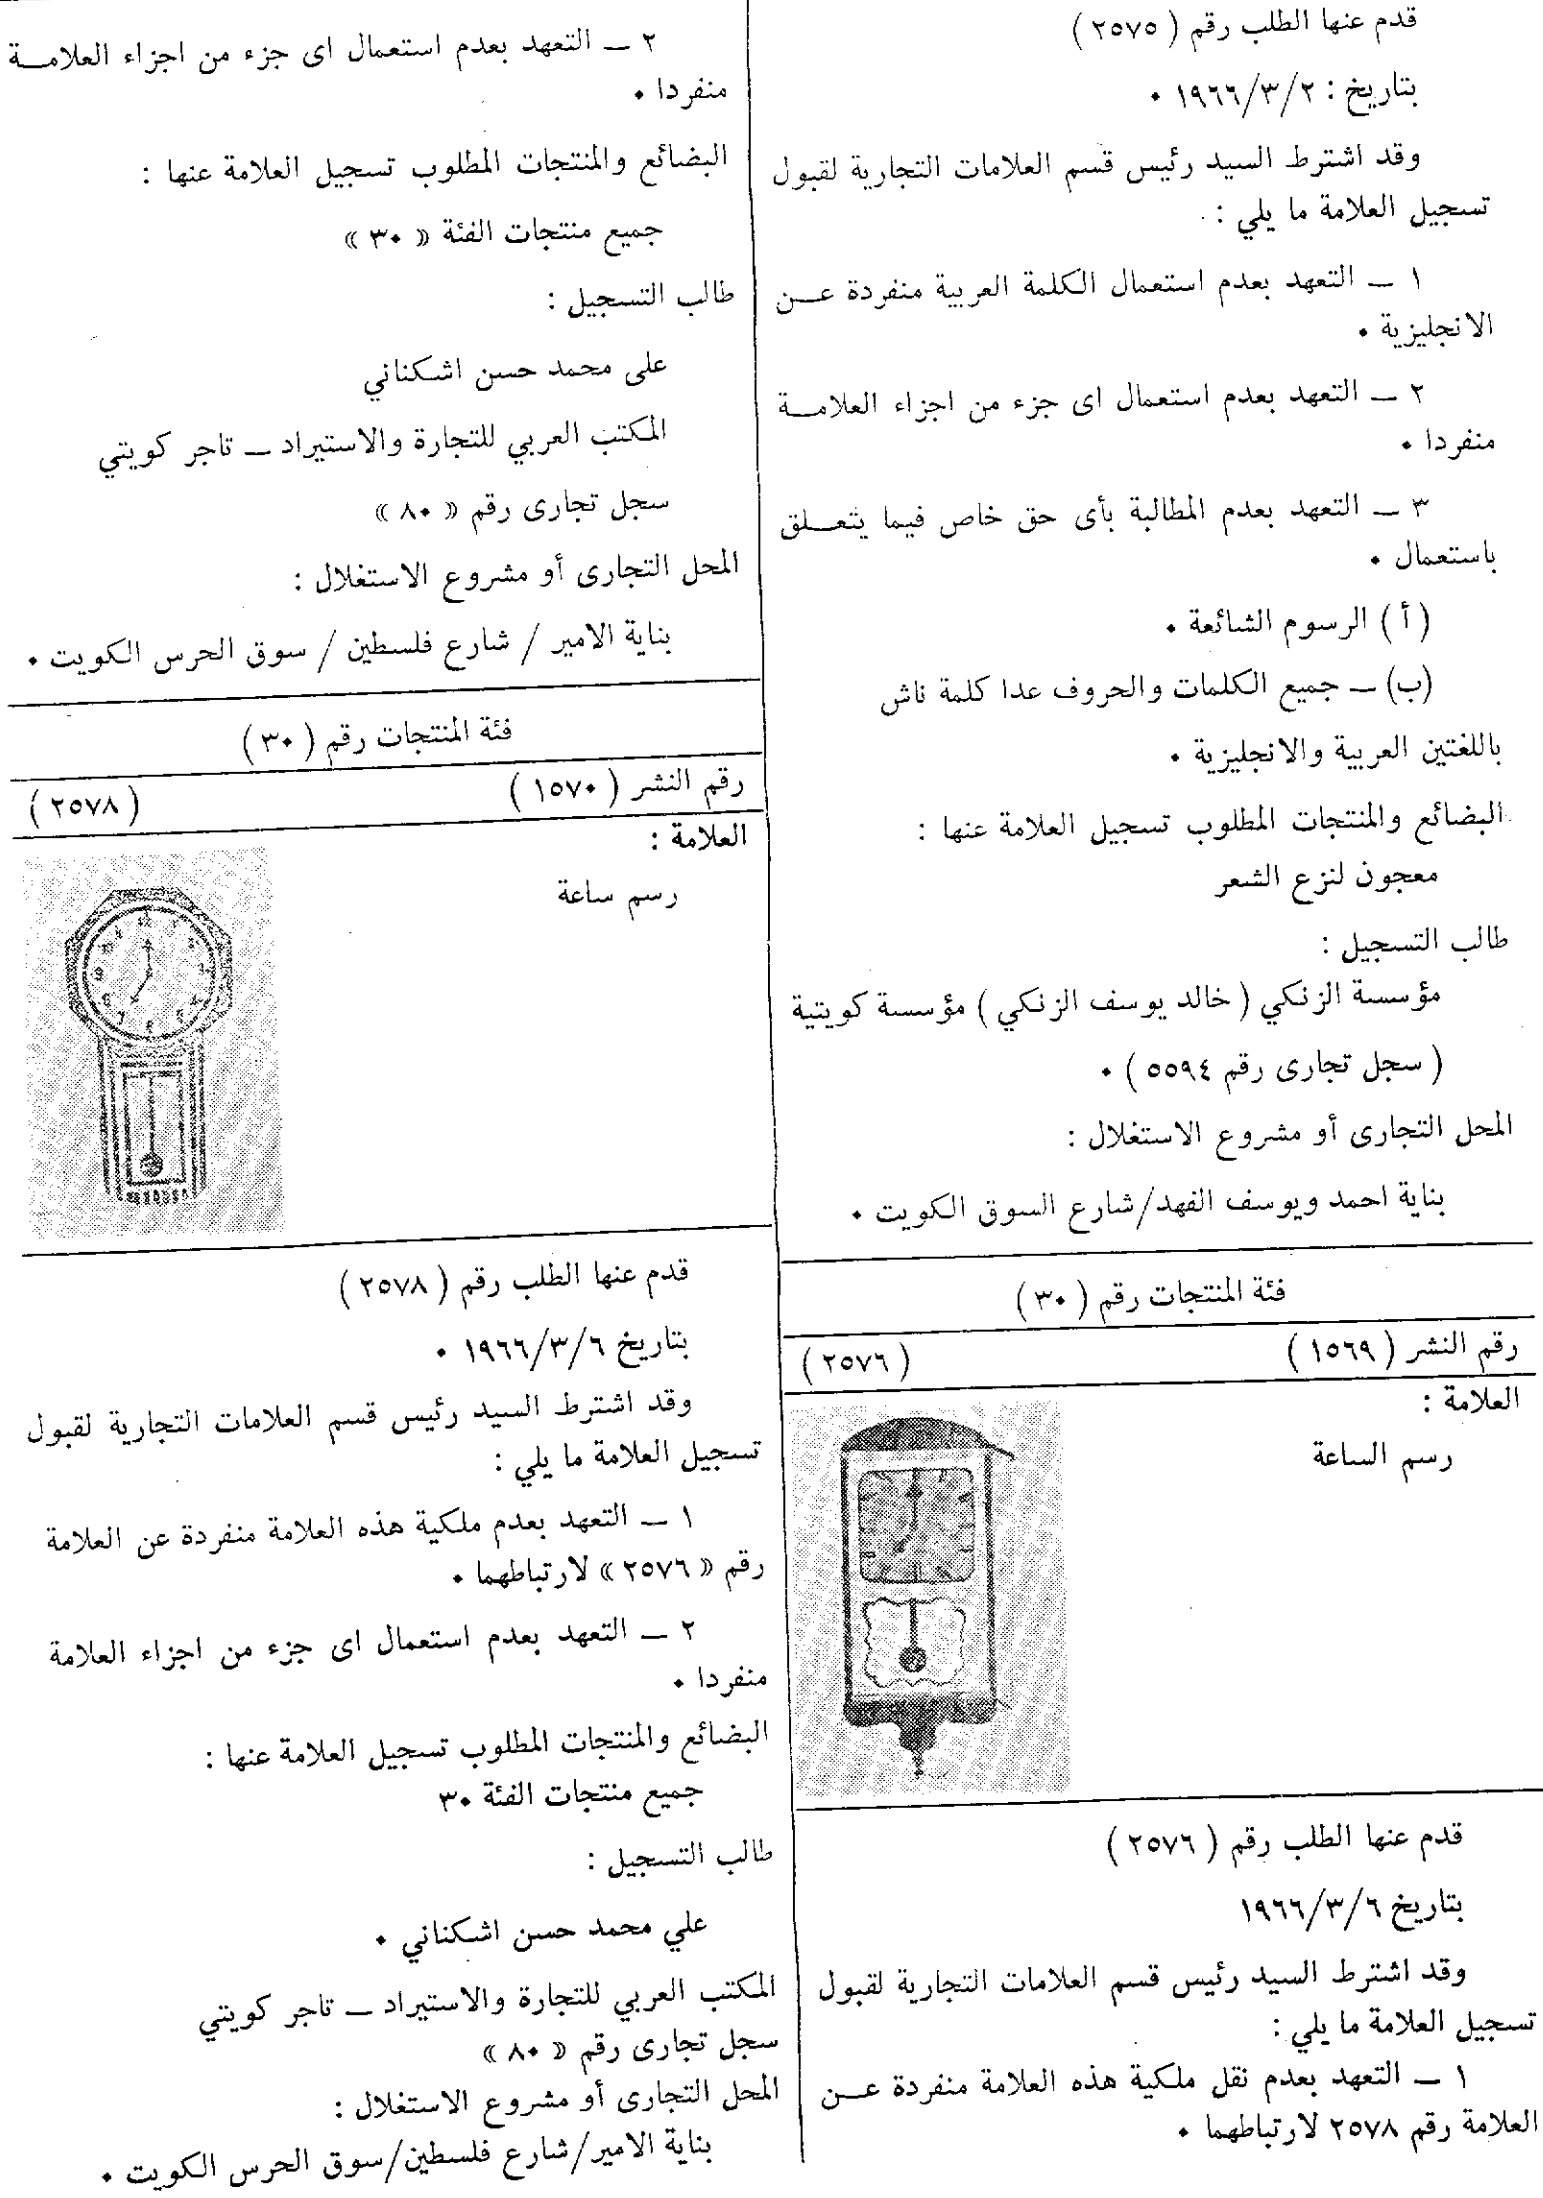 قدم عنها الطلب رقم ( ٢٥٧٥ )
بتاريخ : ١٩٦٦/٣/٢ ٠
وقد اشترط السيد رئيس قسم العلامات التجارية لقبول
تسجيل العلامة ما يلي :
١ ــ التعهد بعدم استعمال الكلمة العربية منفردة عــن
الانجليزية ٠
٢ ــ التعهد بعدم استعمال اى جزء من اجزاء العلامــة
منفردا ٠
٣ ــ التعهد بعدم المطالبة بأى حق خاص فيما يتعــلق
باستعمال ٠
( أ ) الرسوم الشائعة ٠
(ب) ــ جميع الكلمات والحروف عدا كلمة ناش
باللغتين العربية والانجليزية ٠
البضائع والمنتجات المطلوب تسجيل العلامة عنها :
معجون لنزع الشعر
طالب التسجيل :
مؤسسة الزنكي ( خالد يوسف الزنكي ) مؤسسة كويتية
( سجل تجارى رقم ٥٥٩٤ ) ٠
المحل التجارى أو مشروع الاستغلال :
بناية احمد ويوسف الفهد/شارع السوق الكويت ٠
فئة المنتجات رقم ( ٣٠ )
رقم النشر ( ١٥٦٩ ) ( ٢٥٧٦ )
العلامة :
رسم الساعة
قدم عنها الطلب رقم ( ٢٥٧٦ )
بتاريخ ١٩٦٦/٣/٦
وقد اشترط السيد رئيس قسم العلامات التجارية لقبول
تسجيل العلامة ما يلي :
١ ــ التعهد بعدم نقل ملكية هذه العلامة منفردة عــن
العلامة رقم ٢٥٧٨ لارتباطهما ٠
٢ ــ التعهد بعدم استعمال اى جزء من اجزاء العلامــة
منفردا ٠
البضائع والمنتجات المطلوب تسجيل العلامة عنها :
جميع منتجات الفئة « ٣٠ »
طالب التسجيل :
على محمد حسن اشكناني
المكتب العربي للتجارة والاستيراد ــ تاجر كويتي
سجل تجارى رقم « ٨٠ »
المحل التجارى أو مشروع الاستغلال :
بناية الامير / شارع فلسطين / سوق الحرس الكويت ٠
فئة المنتجات رقم ( ٣٠ )
رقم النشر ( ١٥٧٠ ) ( ٢٥٧٨ )
العلامة :
رسم ساعة
قدم عنها الطلب رقم ( ٢٥٧٨ )
بتاريخ ١٩٦٦/٣/٦ ٠
وقد اشترط السيد رئيس قسم العلامات التجارية لقبول
تسجيل العلامة ما يلي :
١ ــ التعهد بعدم ملكية هذه العلامة منفردة عن العلامة
رقم « ٢٥٧٦ » لارتباطهما ٠
٢ ــ التعهد بعدم استعمال اى جزء من اجزاء العلامة
منفردا ٠
البضائع والمنتجات المطلوب تسجيل العلامة عنها :
جميع منتجات الفئة ٣٠
طالب التسجيل :
علي محمد حسن اشكناني ٠
المكتب العربي للتجارة والاستيراد ــ تاجر كويتي
سجل تجارى رقم « ٨٠ »
المحل التجارى أو مشروع الاستغلال :
بناية الامير/شارع فلسطين/سوق الحرس الكويت ٠